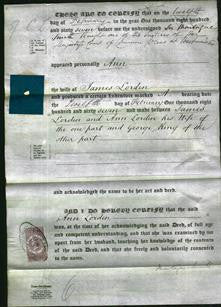 THESE ARE TO CERTIFY that on the twelfth
day of February in the year One thousand eight hundred
and sixty seven before me the undersigned Sir Montague
appeared personally Ann
the wife of James Lordin
and produced a certain Indenture marked A bearing date
the twelfth day of February One thousand eight
hundred and sixty seven and made between James
Lordin and Ann Lordin his Wife of
the one part and George King of the
other part
and acknowledged the same to be her act and deed.
AND I DO HEREBY CERTIFY that the said
Ann Lordin
was, at the time of her acknowledging the said Deed, of full age and
competent understanding, and that she was examined by me
apart from her husband, touching her knowledge of the contents
of the said Deed, and that she freely and voluntarily consented
to the same.